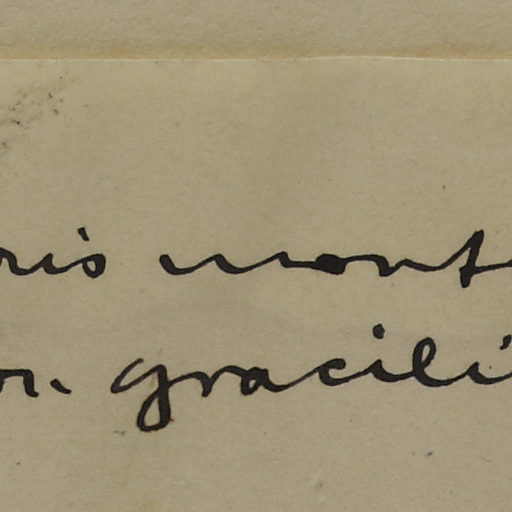 ris mont
or. gracili